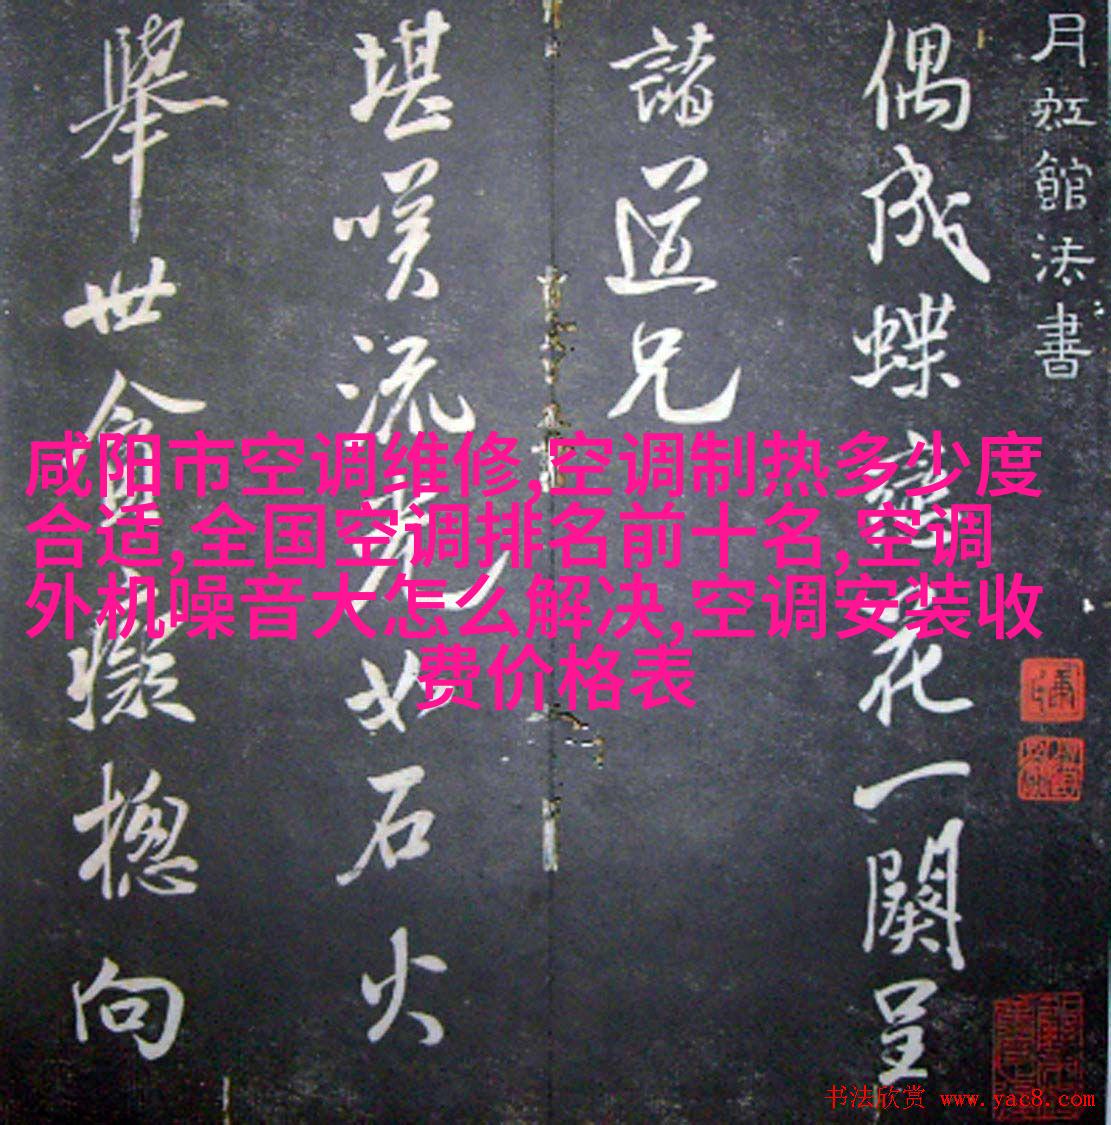 月虹館法書
偶成蝶戀花一闋呈
諸道兄
堪嘆流光如石火
舉世貪癡摠向
咸阳市空调维修,空调制热多少度
合适,全国空调排名前十名,空调
外机噪音大怎么解决,空调安装收
费价格表
书法欣赏 www.yac8.com